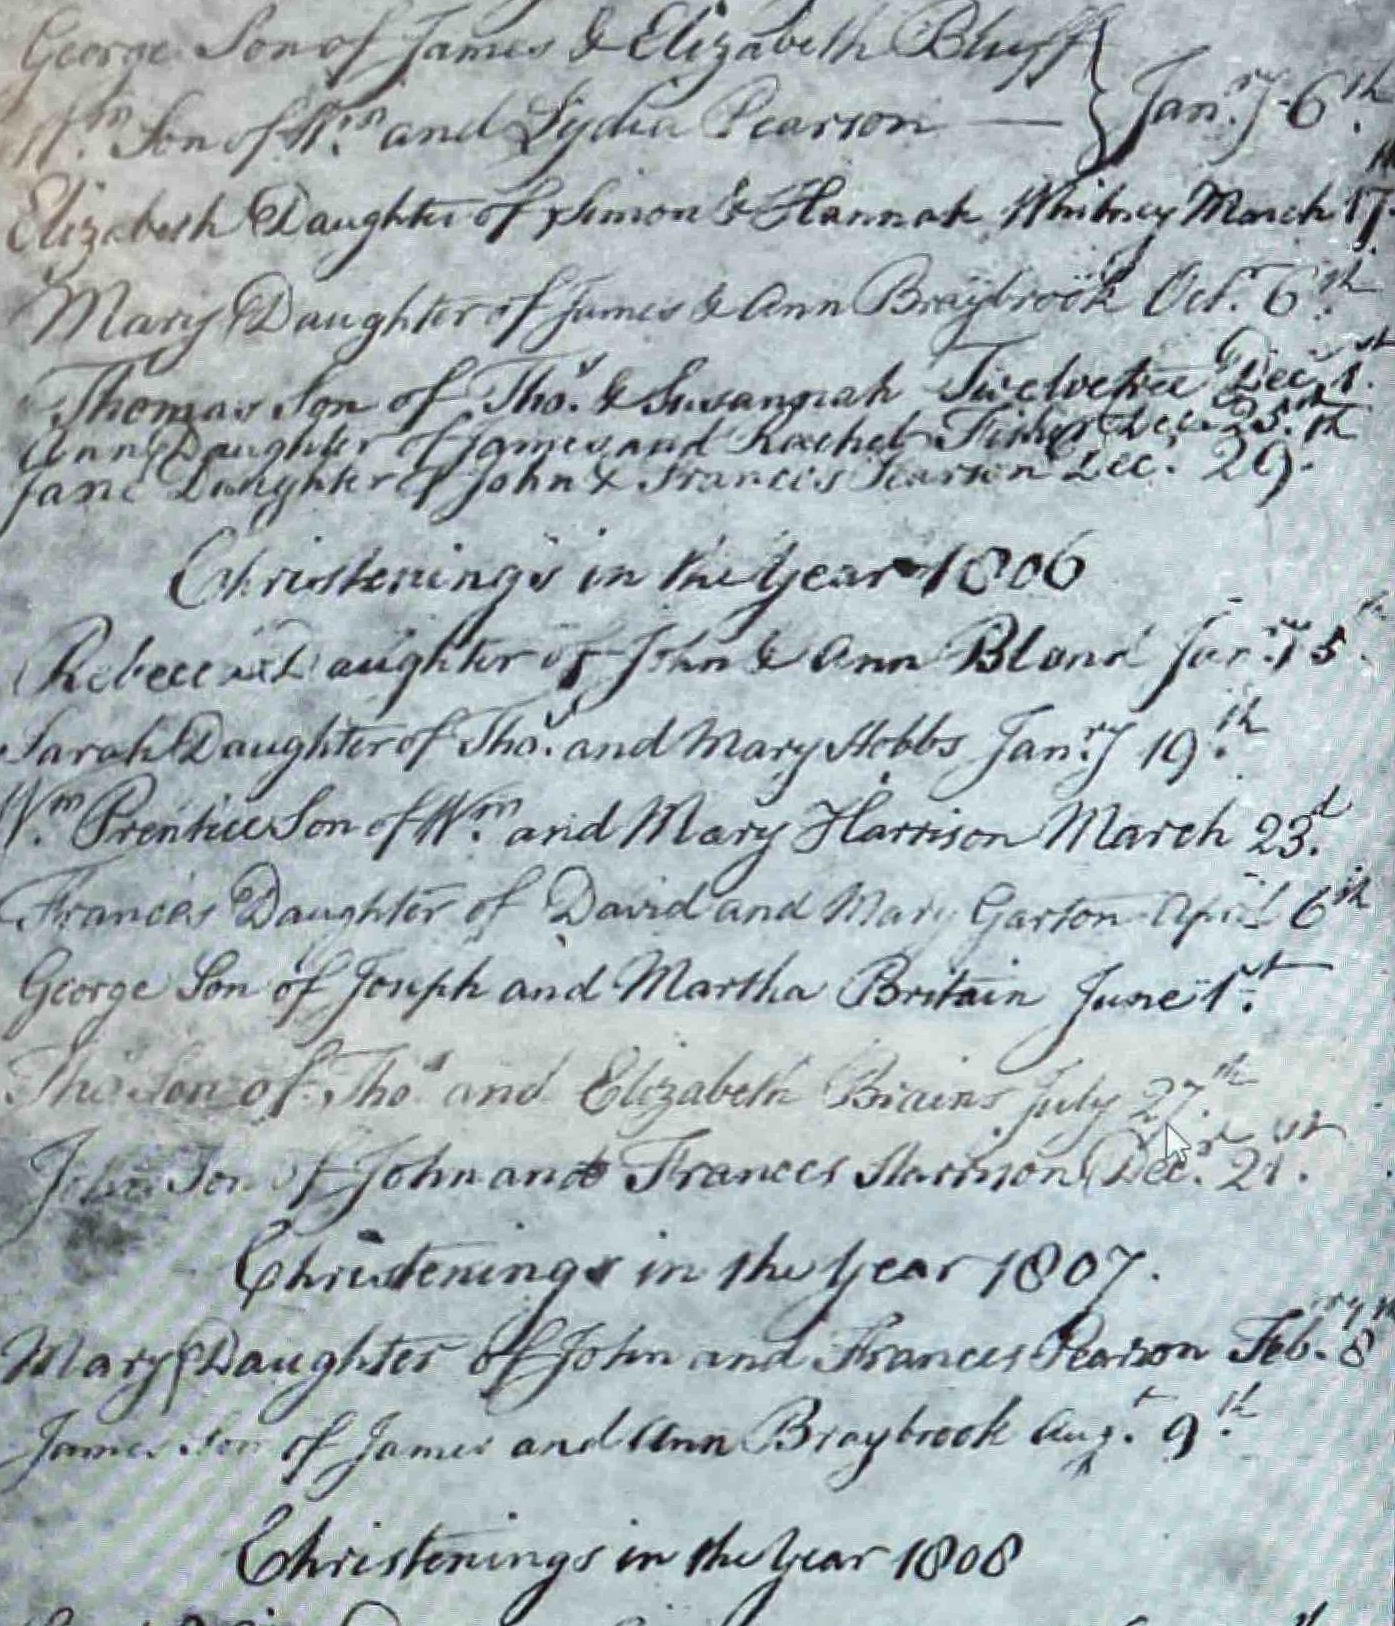 George Son of James & Elizabeth Bluff
Wm. Son of Wm. and Lydia Pearson — Janry. 6th.
Elizabeth Daughter of Simon & Hannah Whitney March 17
Mary Daughter of James & Ann Braybrook Octr. 6th.
Thomas Son of Thos. & Susannah Twelvetree Decr. 1st.
Ann Daughter of James and Rachel Fisher Dec. 25th.
Jane Daughter of John & Francis Pearson Dec. 29th.
Christenings in the Year 1806
Rebecca Daughter of John & Ann Bland Janry. 5th.
Sarah Daughter of Thos. and Mary Hobbs Janry. 19th.
Wm. Prentice Son of Wm. and Mary Harrison March 23d.
Frances Daughter of David and Mary Garton April 6th
George Son of Joseph and Martha Britain June 1st.
Thos. Son of Thos. and Elizabeth Brains July 27th.
John Son of John and Frances Harrison Decr. 21st.
Christenings in the Year 1807.
Mary Daughter of John and Frances Pearson Febry. 8th
James Son of James and Ann Braybrook Augt. 9th.
Christenings in the Year 1808